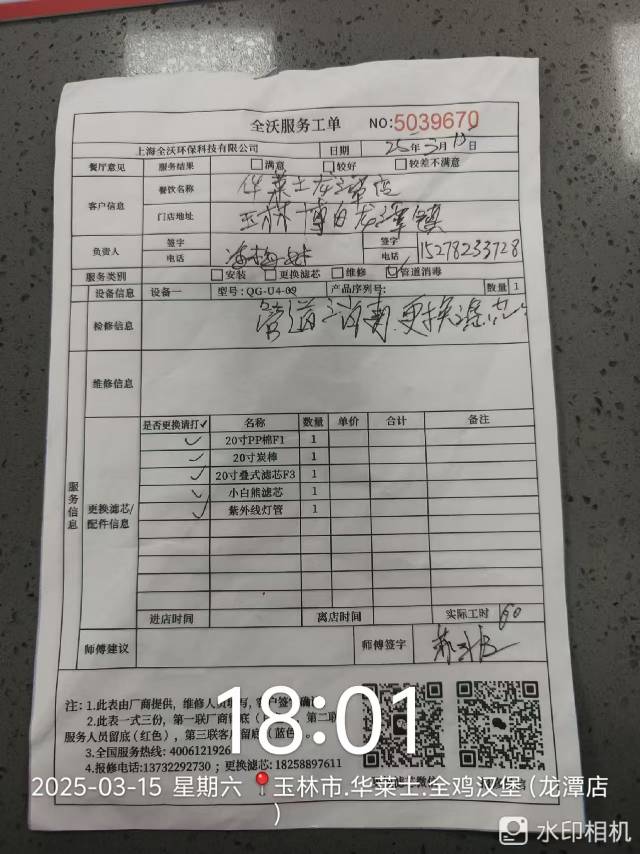 全沃服务工单 NO:5039670
上海全沃环保科技有限公司 日期 25年3月15日
餐厅意见 服务结果 满意 较好 较差不满意
客户信息 餐饮名称 华莱士龙潭店
门店地址 玉林博白龙潭镇
负责人 签字 电话 签字 电话 15278233728
服务类别 安装 更换滤芯 维修 管道消毒
设备信息 设备一 型号:QG-U4-09 产品序列号: 数量 1
检修信息 管道消毒.更换滤芯
维修信息
服务信息
更换滤芯/配件信息
是否更换请打✓ 名称 数量 单价 合计 备注
✓ 20寸PP棉F1 1
✓ 20寸炭棒 1
✓ 20寸叠式滤芯F3 1
✓ 小白熊滤芯 1
✓ 紫外线灯管 1
进店时间 离店时间 实际工时 60
师傅建议 师傅签字
注: 1.此表由厂商提供, 维修人员填写, 客户签字确认
2.此表一式三份, 第一联厂商留底( 第二联
服务人员留底(红色), 第三联客户留底(蓝色
3.全国服务热线: 4006121926
4.报修电话:13732292730 ; 更换滤芯: 18258897611
18:01
2025-03-15 星期六 玉林市.华莱士.全鸡汉堡(龙潭店
)
水印相机